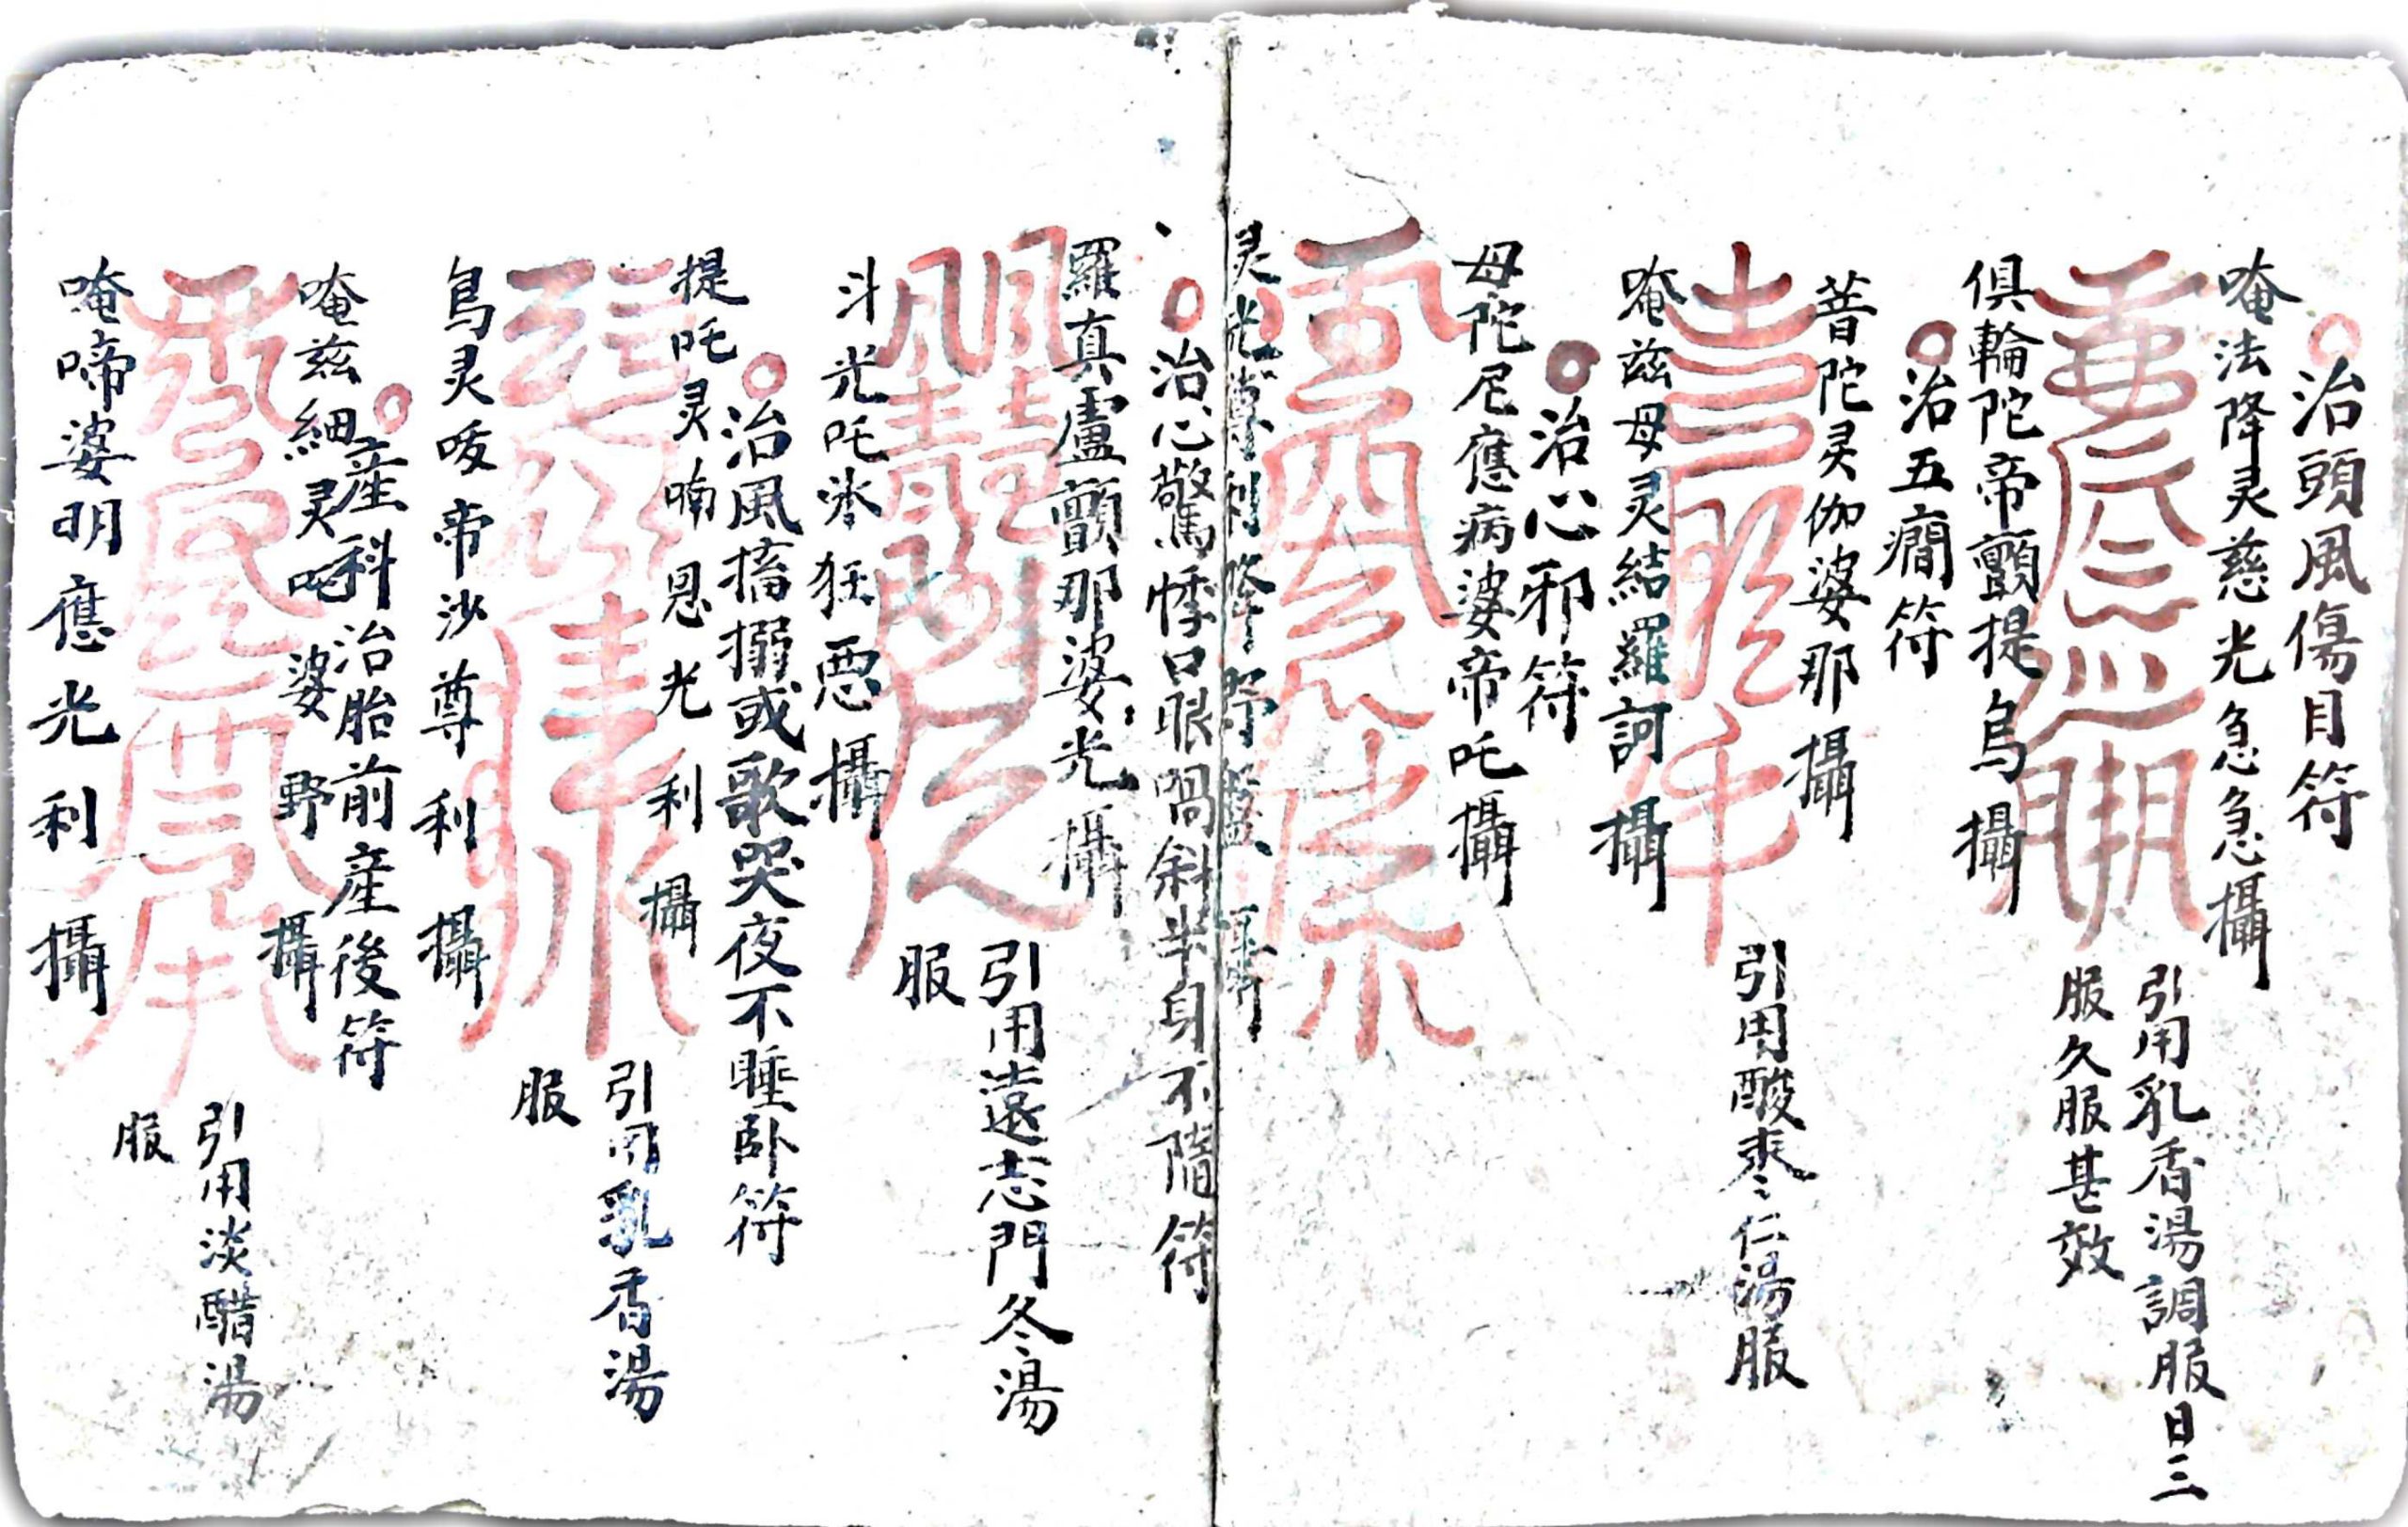 治頭風傷目符
唵法降灵慈光急急攝
引用乳香湯調服日三
服久服甚效
俱輪陀帝顫提烏攝
治五癇符
菩陀灵伽婆那攝
引用酸枣仁湯服
唵兹母灵結羅訶攝
治心邪符
母陀尼應病婆帝吒攝
灵光尊利降
治心驚悸口眼喎斜半身不隨符
羅真盧顫那婆光攝
引用遠志門冬湯
服
斗光吒沵狂恶攝
治風搐搦或歌哭夜不睡卧符
提吒灵喃恩光利攝
引用乳香湯
服
烏灵唛帝沙尊利攝
産科治胎前産後符
唵兹細灵吒婆野攝
引用淡醋湯
服
唵啼婆明應光利攝